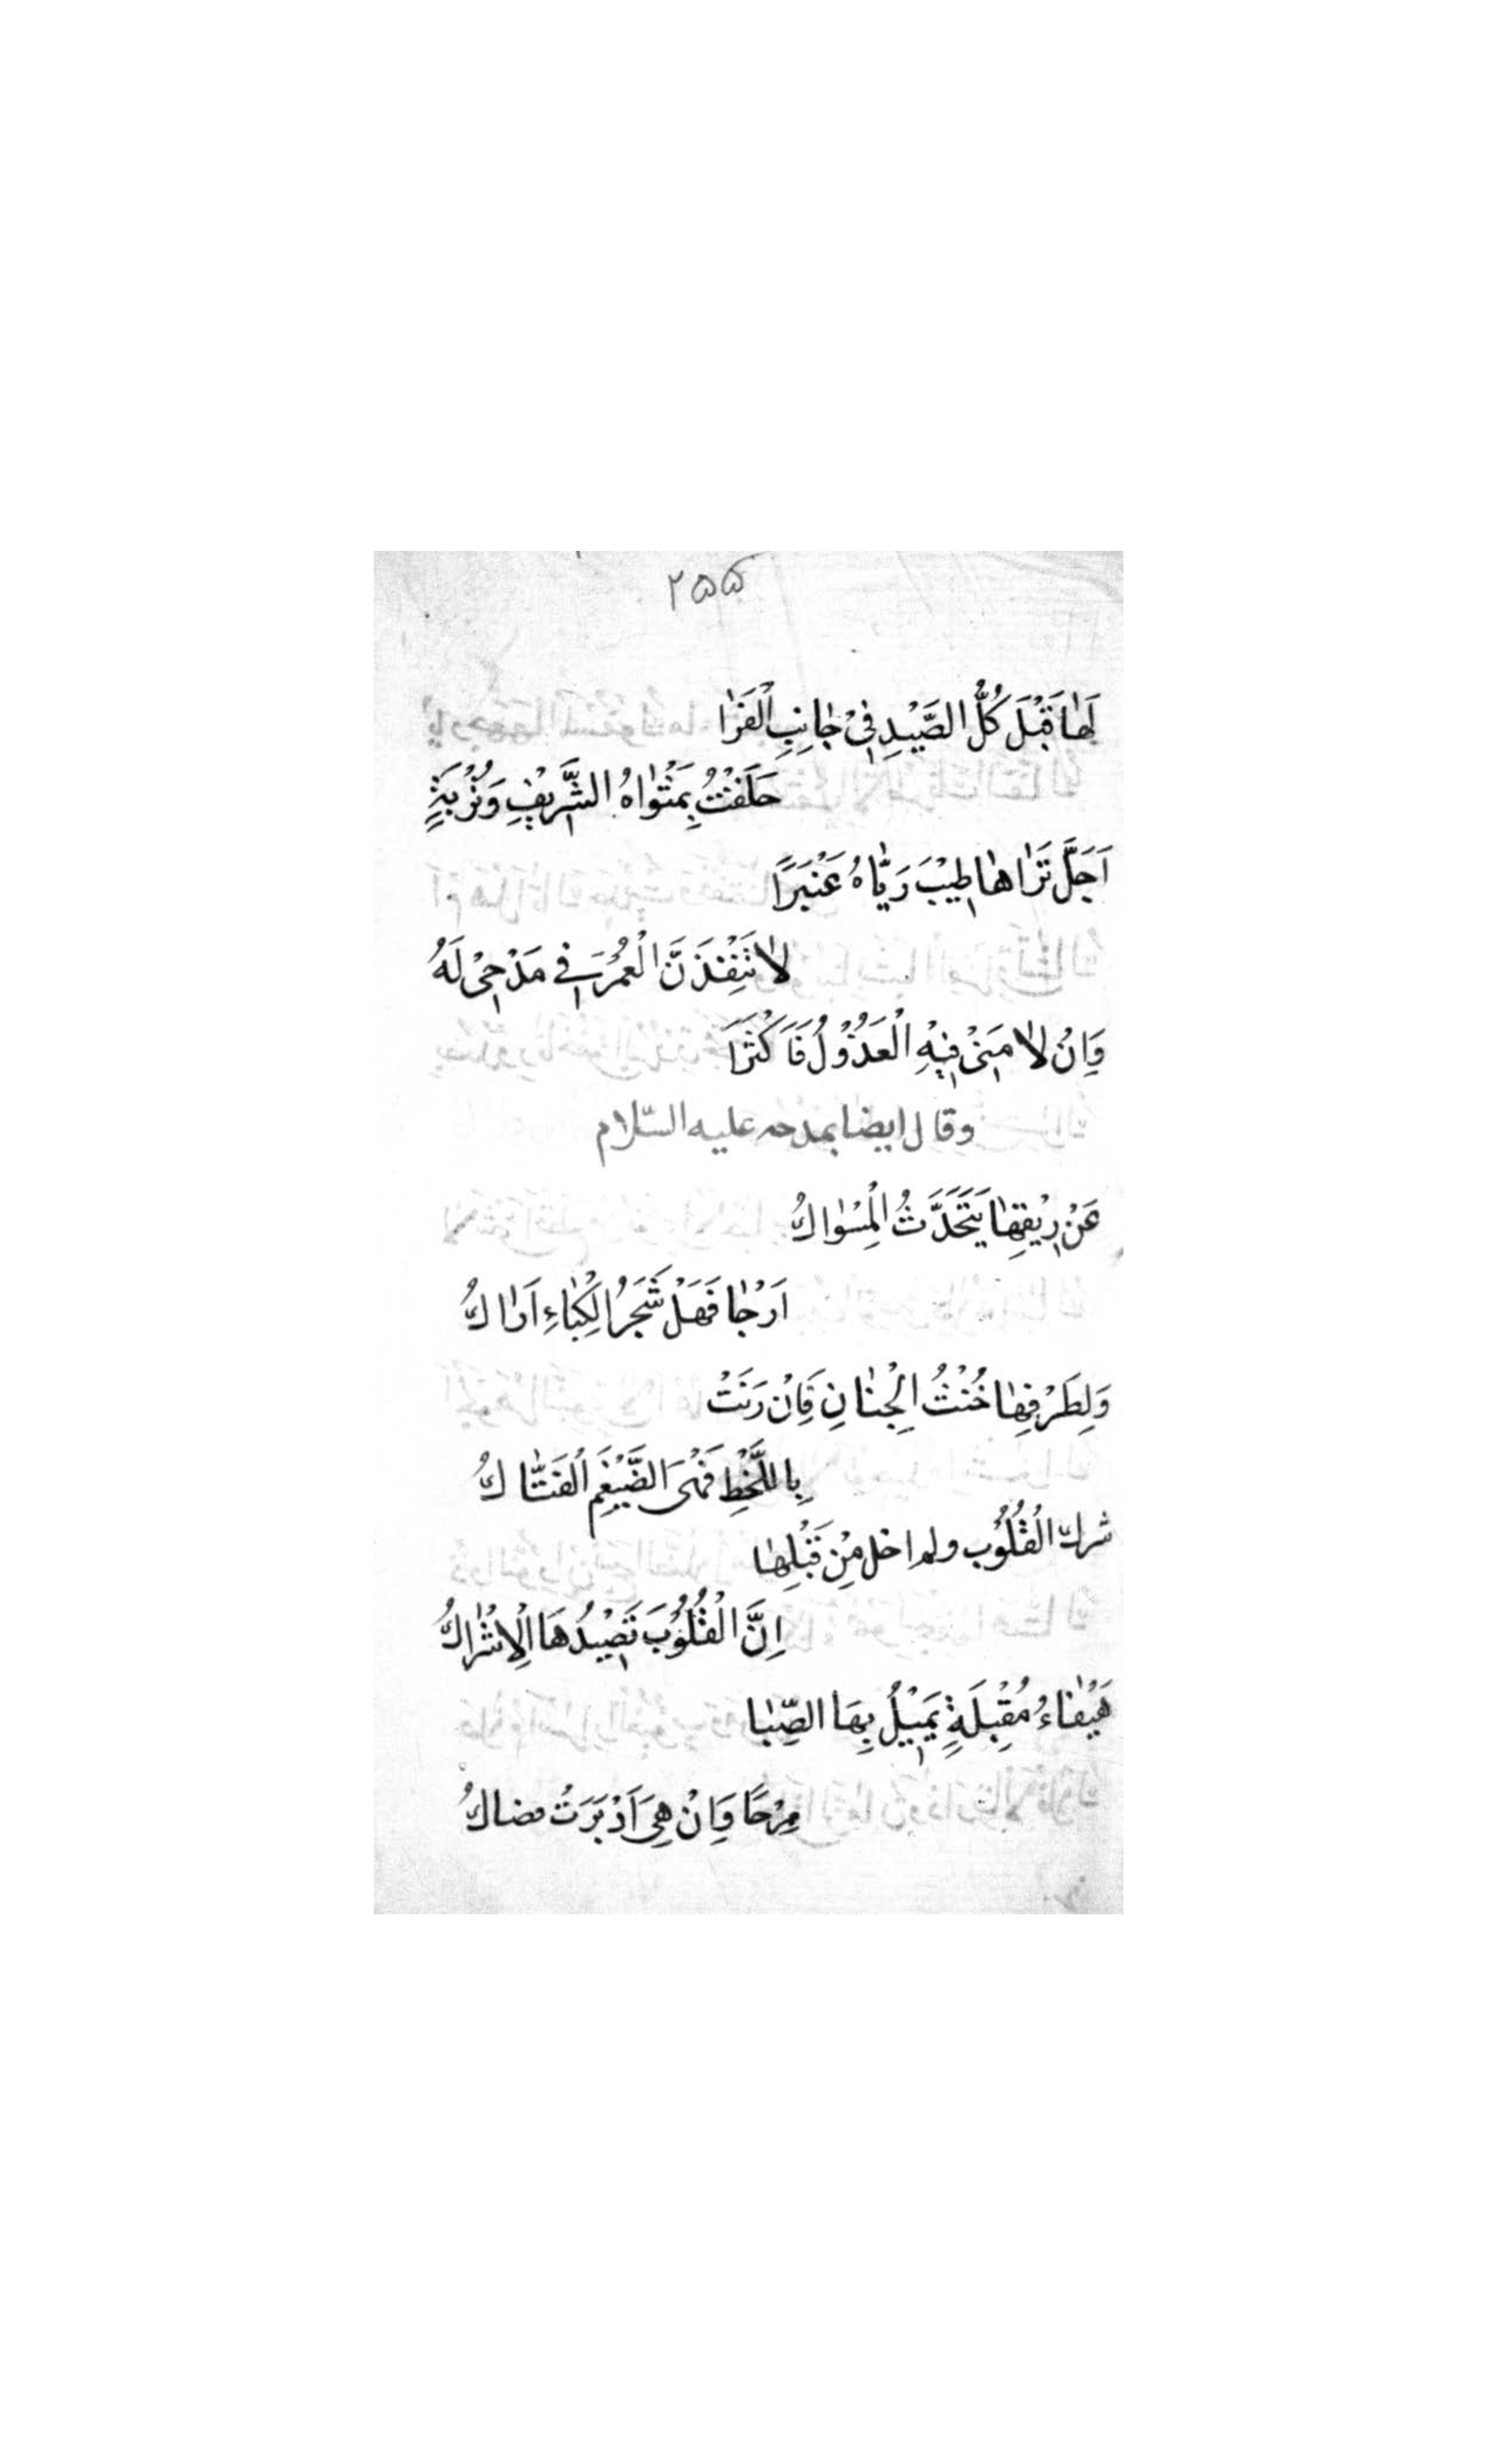 ٢٥٥
لَهٰا قَبْلَ كُلُّ الصَّيْدِ فِيْ جٰانِبِ الْفَرٰا
حَلَفْتُ بِمَثْوٰاهُ الشَّرِيْفِ وَتُرْبَةٍ
اَجَلَّ تَرٰاهٰا طِيْبَ رَيّٰاهُ عَنْبَرًا
لٰاَنْفِذَنَّ الْعُمْرَ فِي مَدْحِيْ لَهُ
وَاِنْ لٰامَنِيْ فِيْهِ الْعَذُوْلُ فَاَكْثَرَا
وقال ايضا بمدحه عليه السّلام
عَنْ رِيْقِهٰا يَتَحَدَّثُ الْمِسْوٰاكُ
اَرَجْاً فَهَلْ شَجَرُ الْكِبٰاءِ اَرٰاكُ
وَلِطَرْفِهٰا خُنْثُ الْجِنٰانِ فَاِنْ رَنَتْ
بِاللَّحْظِ فَهْيَ الضَّيْغَمِ الْفَتّٰاكُ
شرك الْقُلُوْب ولم اخل مِنْ قَبْلِهٰا
اِنَّ الْقُلُوْبَ تَصِيْدُهَا الْاِشْرٰاكُ
هَيْفٰاءُ مُقْبِلَةٍ يَمِيْلُ بِهَا الصِّبٰا
مِرْحًا وَاِنْ هِيَ اَدْبَرَتْ فضاكُ